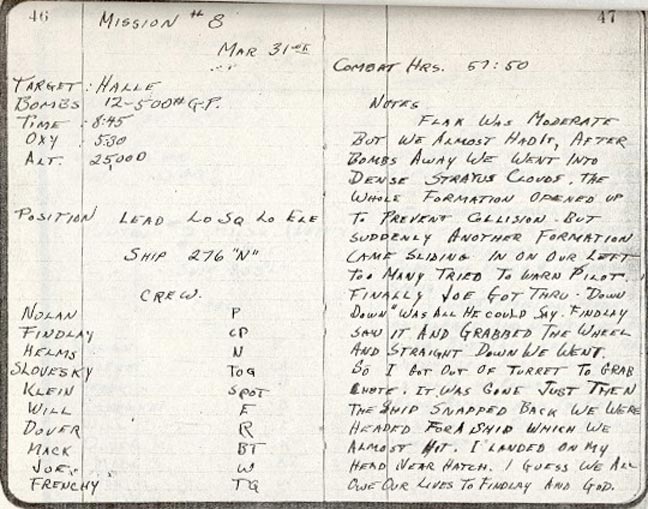 46
MISSION #8
MAR 31st
TARGET : HALLE
BOMBS 12-500# G.P.
TIME : 8:45
OXY : 5:30
ALT. 25,000
POSITION LEAD LO SQ LO ELE
SHIP 276 "N"
CREW.
NOLAN P
FINDLAY CP
HELMS N
SLOVESKY TOG
KLEIN SPOT
WILL E
DOVER R
MACK BT
JOE W
FRENCHY TG
47
COMBAT HRS. 57:50
NOTES
FLAK WAS MODERATE
BUT WE ALMOST HAD IT, AFTER
BOMBS AWAY WE WENT INTO
DENSE STRATUS CLOUDS. THE
WHOLE FORMATION OPENED UP
TO PREVENT COLLISION. BUT
SUDDENLY ANOTHER FORMATION
CAME SLIDING IN ON OUR LEFT
TOO MANY TRIED TO WARN PILOT.
FINALLY JOE GOT THRU. "DOWN
DOWN" WAS ALL HE COULD SAY. FINDLAY
SAW IT AND GRABBED THE WHEEL
AND STRAIGHT DOWN WE WENT.
SO I GOT OUT OF TURRET TO GRAB
CHUTE. IT WAS GONE JUST THEN
THE SHIP SNAPPED BACK WE WERE
HEADED FOR A SHIP WHICH WE
ALMOST HIT. I LANDED ON MY
HEAD NEAR HATCH. I GUESS WE ALL
OWE OUR LIVES TO FINDLAY AND GOD.